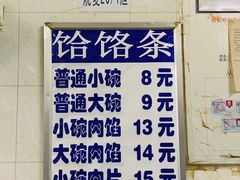 饸饹条
普通小碗 8元
普通大碗 9元
小碗肉馅 13元
大碗肉馅 14元
小碗肉片 15元